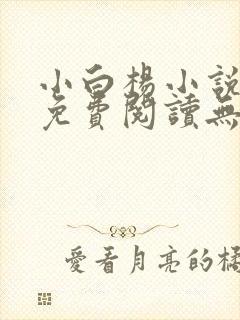 小白楊小說
免費閱讀無
愛看月亮的橘